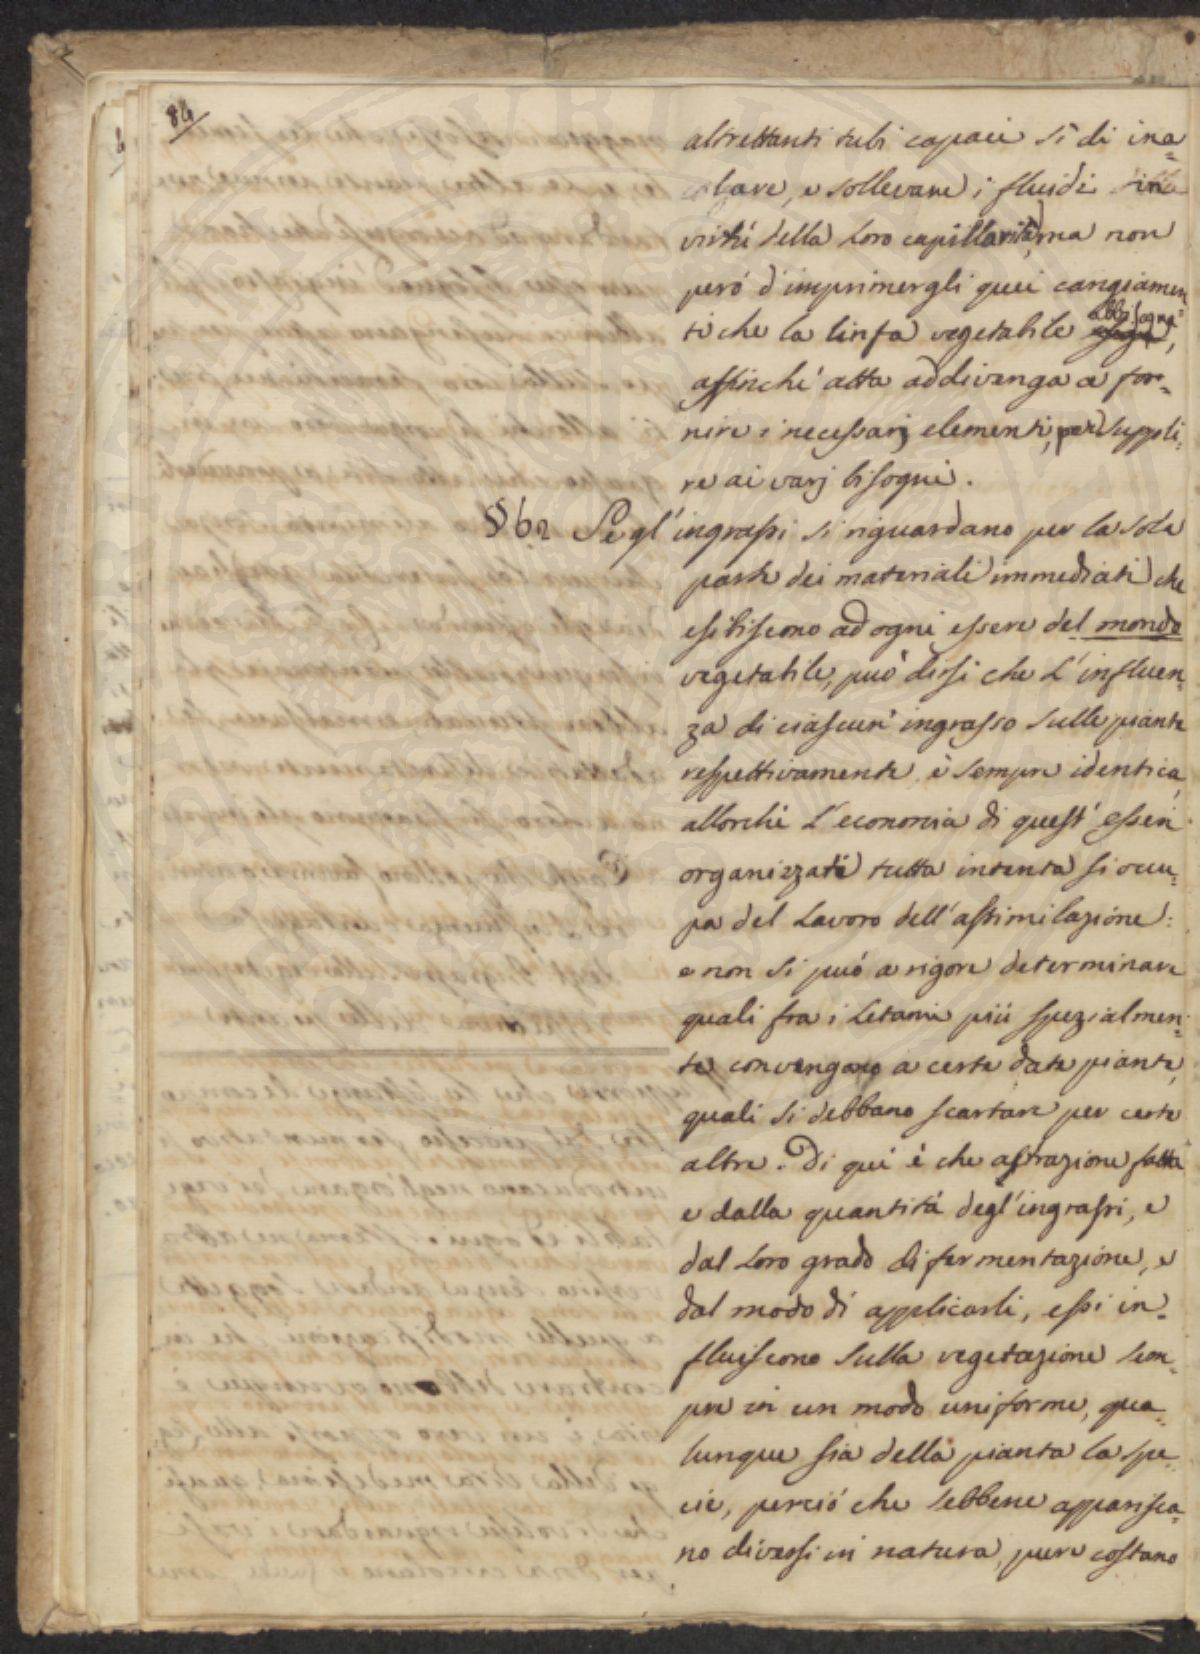 84
altrettanti tubi capaci sì di ina=
lare, e sollevare i fluidi in
virtú della Loro capillarità, ma non
peró d'imprimergli quei cangiamen=
ti che la linfa vegetabile abbisogna,
affinchè atta addivenga a for=
nire i necessarj elementi, per suppli=
re ai varj bisogni.
§62 Se gl'ingrassi si riguardano per la sola
parte dei materiali immediati che
esibiscono ad ogni essere del mondo
vegetabile, può dirsi che L'influen=
za di ciascun' ingrasso sulle piante
respettivamente è sempre identica,
allorchè L'economia di quest' esseri
organizzati tutta intenta si occu=
pa del Lavoro dell'assimilazione:
e non si puó a rigore determinare
quali fra i Letami piú spezialmen=
te convengano a certe date piante,
quali si debbano scartare per certe
altre. Di quì è che astrazione fatta
e dalla quantitá degl'ingrassi, e
dal Loro grado di fermentazione, e
dal modo di applicarli, essi in=
fluiscono sulla vegetazione sem=
pre in un modo uniforme, qua=
lunque sia della pianta la spe=
cie, perció che sebbene apparisca=
no diversi in natura, pure costano